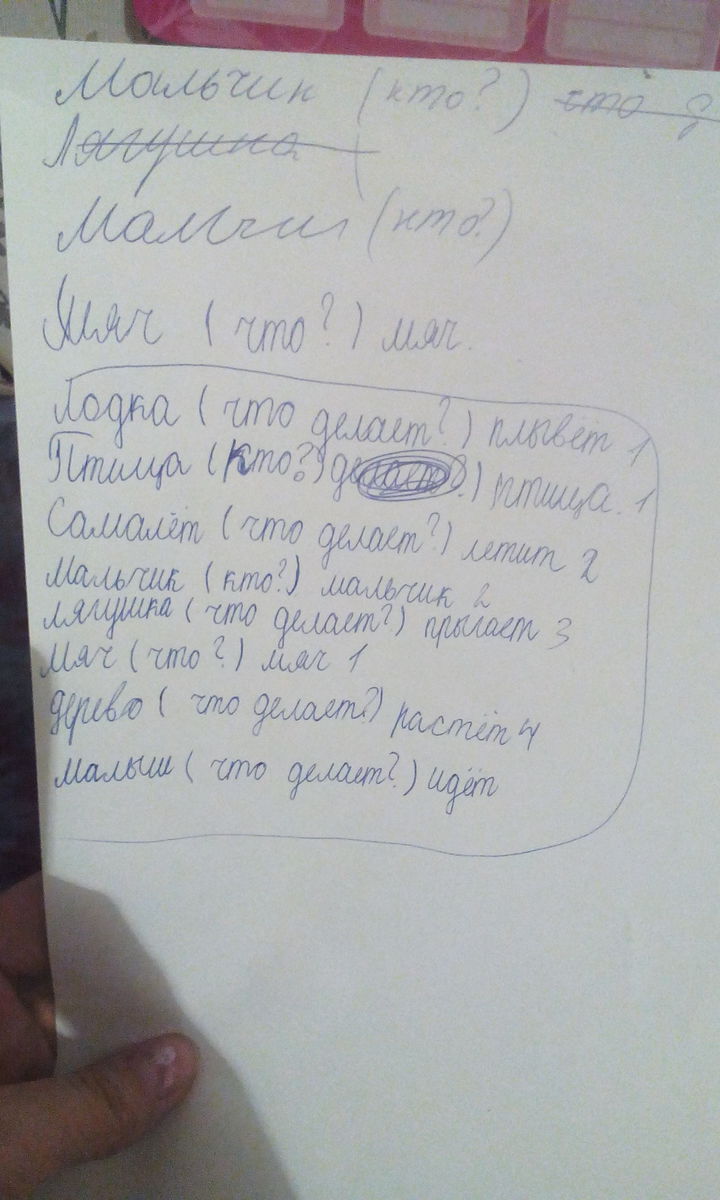 Мальчик (кто?) что д
Лягушка (
Мальчи (кто?)
Мяч (что?) мяч.
Лодка (что делает?) плывёт 1
Птица (кто?) делает?) птица. 1
Самалёт (что делает?) летит 2
мальчик (кто?) мальчик 2
лягушка (что делает?) прыгает 3
мяч (что?) мяч 1
дерево (что делает?) растёт 4
малыш (что делает?) идёт